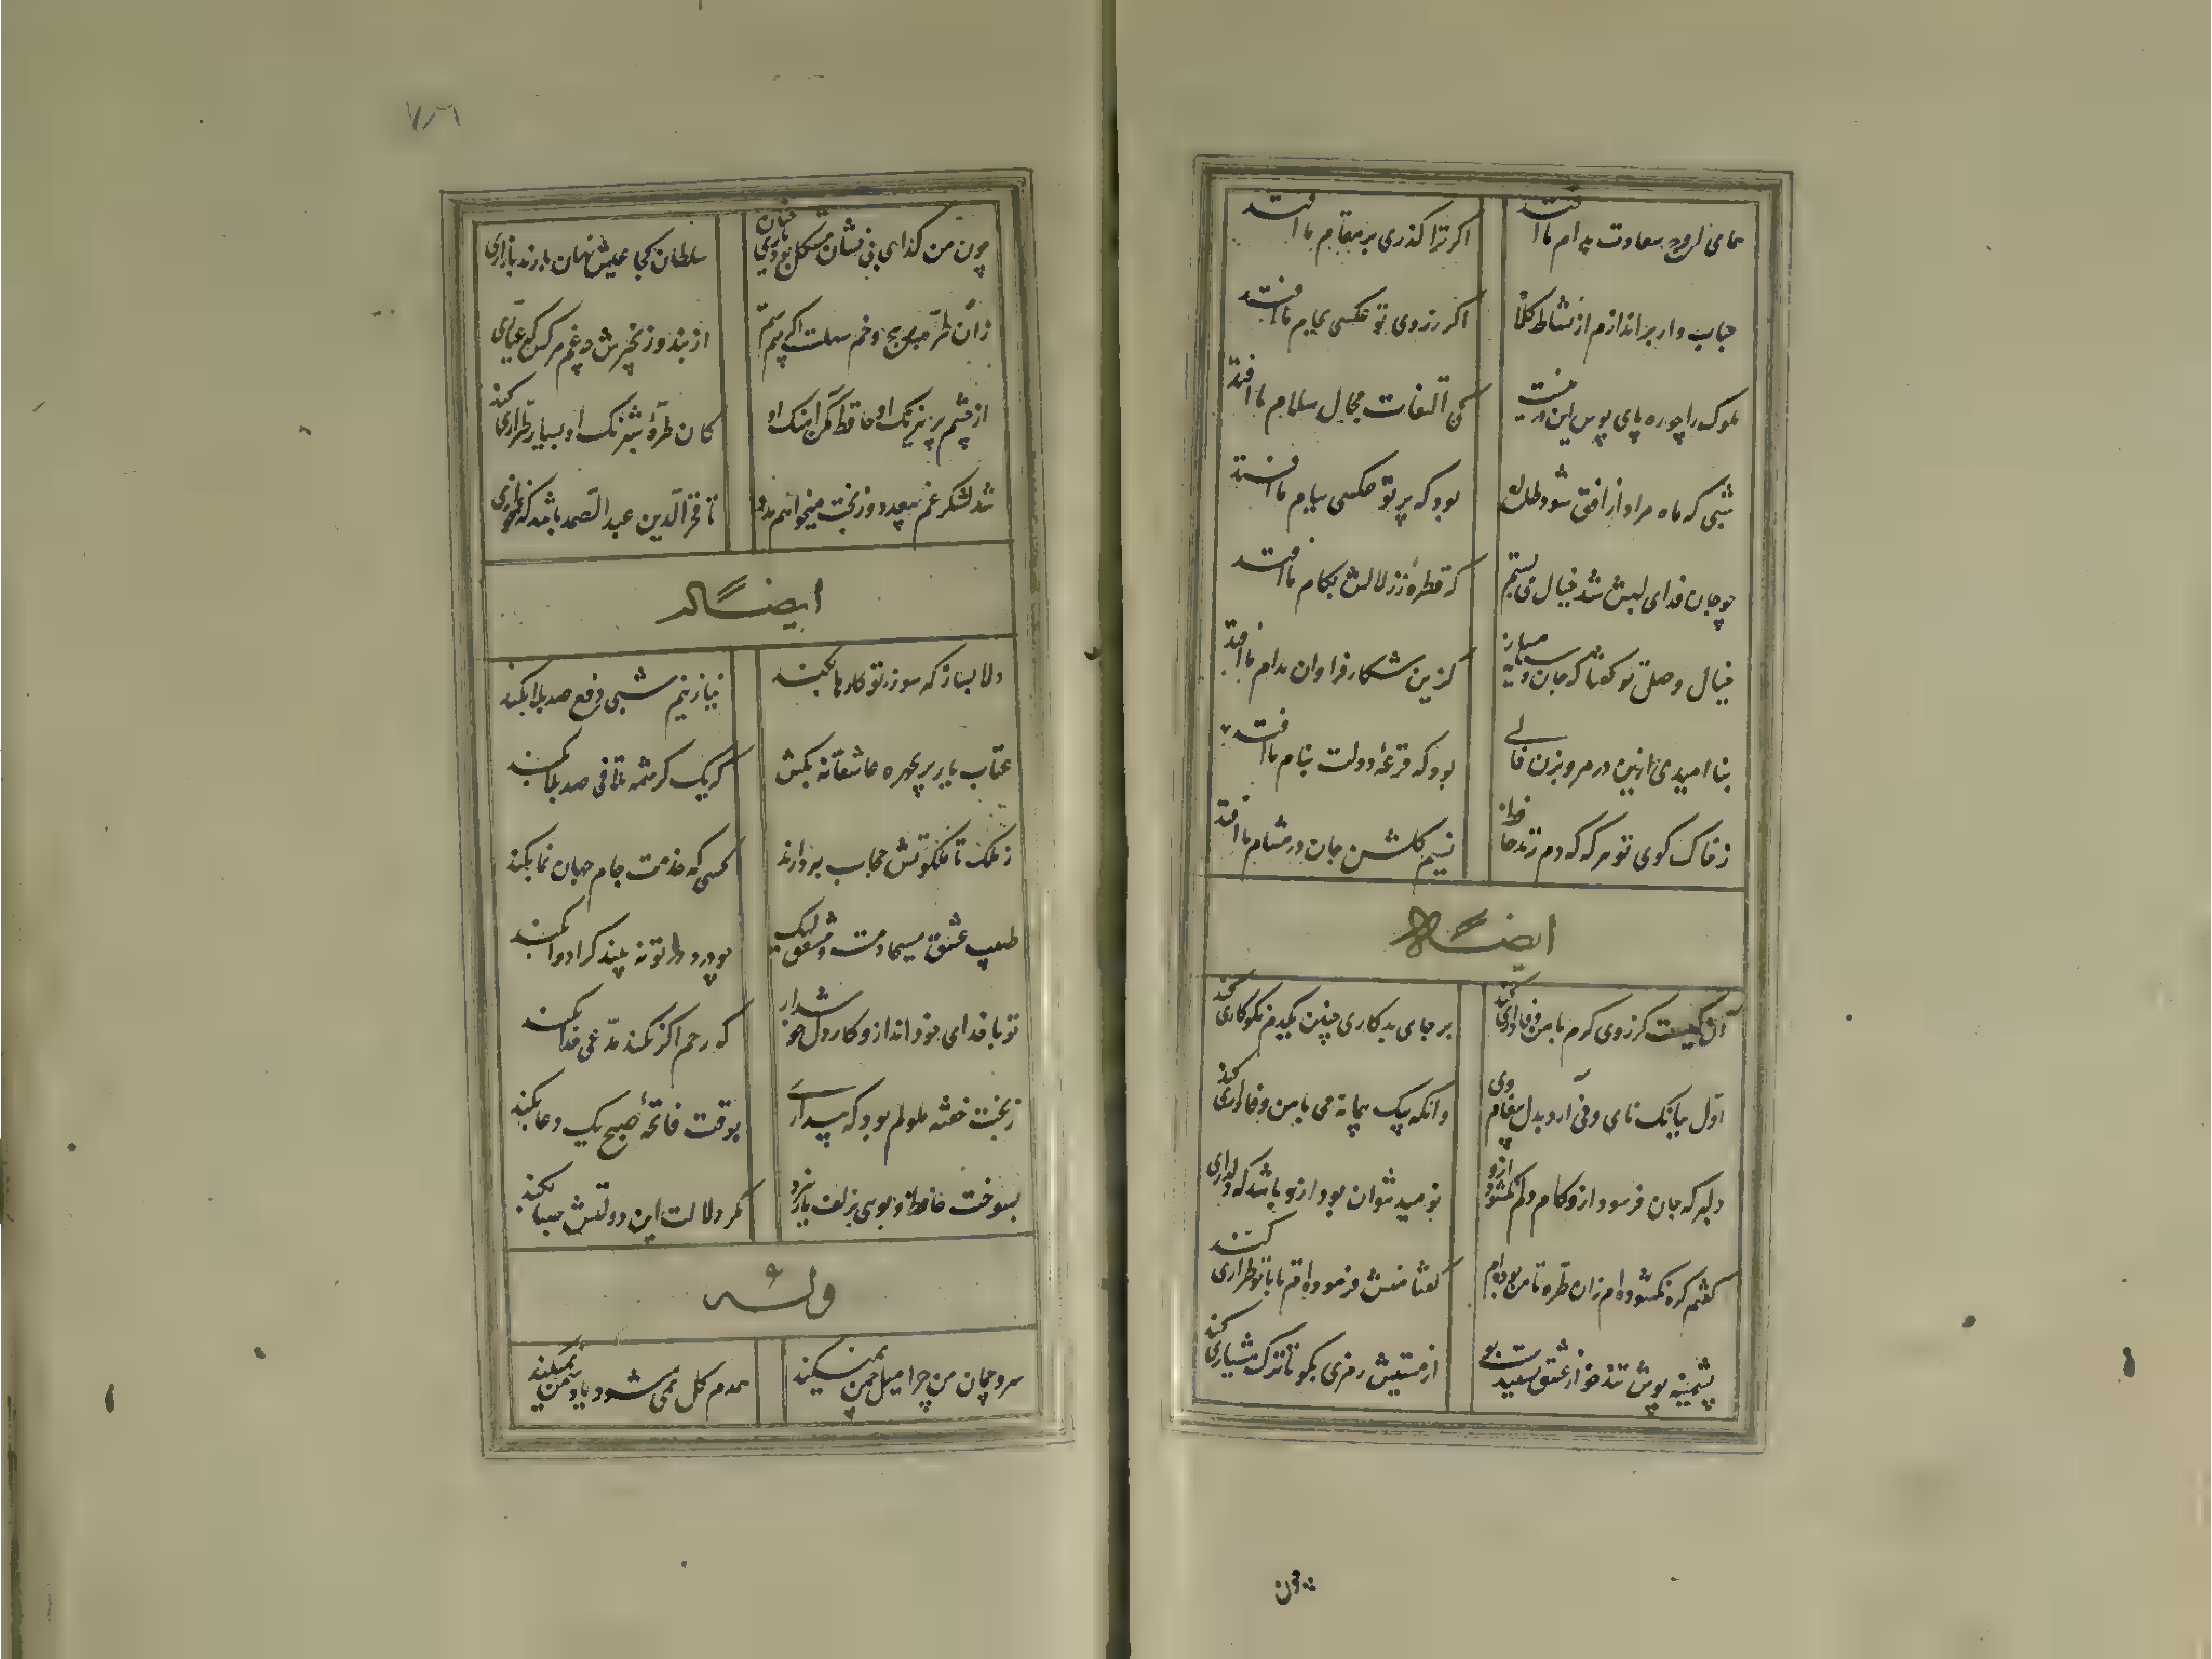 همای اوج سعادت بدام ما افتد
اگر ترا گذری بر مقام ما افتد
حباب وار براندازم از نشاط کلاه
اگر ز روی تو عکسی بجام ما افتد
ملوک را چو ره پای بوس این در نیست
کی التفات مجال سلام ما افتد
شبی که ماه مراد از افق شود طالع
بود که پرتو عکسی ببام ما افتد
چو جان فدای لبش شد خیال می بستم
که قطرهٔ ز زلالش بکام ما افتد
خیال وصل تو گفتا که جان وسیله مساز
کزین شکار فراوان بدام ما افتد
بنا امیدی ازین در مرو بزن فالی
بود که قرعهٔ دولت بنام ما افتد
ز خاک کوی تو هر گه که دم زند حافظ
نسیم گلشن جان در مشام ما افتد
ایضاً له
آن کیست کز روی کرم با من وفاداری کند
بر جای بدکاری چو من یکدم نکوکاری کند
اول ببانگ نای و نی آرد بدل پیغام وی
وانگه بیک پیمانه می با من وفاداری کند
دلبر که جان فرسود ازو کام دلم نگشود ازو
نومید نتوان بود ازو باشد که دلداری کند
گفتم گره نگشوده‌ام زان طره تا من بوده‌ام
گفتا منش فرموده‌ام تا با تو طراری کند
پشمینه پوش تند خو از عشق نشنیدست بو
از مستیش رمزی بگو تا ترک هشیاری کند
چون من
چون من گدای بی نشان مشکل بود یاری چنان
سلطان کجا عیش نهان با رند بازاری کند
زان طره پر پیچ و خم سهلست اگر بینم ستم
از بند و زنجیرش چه غم هر کس که عیاری کند
از چشم پر نیرنگ او حافظ مکن آهنگ او
کان طرهٔ شبرنگ او بسیار طراری کند
شد لشکر غم بیعدد وز بخت میخواهم مدد
تا فخر الدین عبد الصمد باشد که غمخواری کند
ایضاً له
دلا بساز که سوز تو کارها بکند
نیاز نیم شبی دفع صد بلا بکند
عتاب یار پریچهره عاشقانه بکش
که یک کرشمه تلافی صد بلا بکند
ز ملک تا ملکوتش حجاب بردارند
کسی که خدمت جام جهان نما بکند
طبیب عشق مسیحا دمست و مشفق لیک
چو درد در تو نه بیند کرا دوا بکند
تو با خدای خود انداز و کار دل خوش دار
که رحم اگر نکند مدعی خدا بکند
ز بخت خفته ملولم بود که بیداری
بوقت فاتحهٔ صبح یک دعا بکند
بسوخت حافظ و بوی بزلف یار نبرد
مگر دلالت این دولتش صبا بکند
وله
سرو چمان من چرا میل چمن نمیکند
همدم گل نمی شود یاد سمن نمیکند